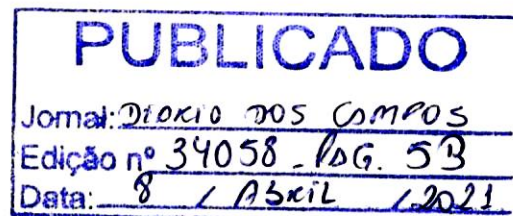 PUBLICADO
Jornal: DIÁRIO DOS CAMPOS
Edição nº 34058 - PÁG. 5B
Data: 8 / ABRIL / 2021